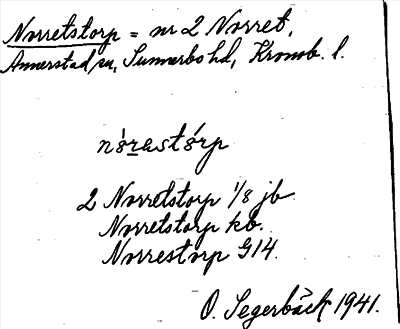 Norretstorp = nr 2 Norret,
Annerstad sn, Sunnerbo hd, Kronob. l.
nórastórp
2 Norretstorp 1/8 jb
Norretstorp kb.
Norrestorp G14.
O. Segerbäck 1941.